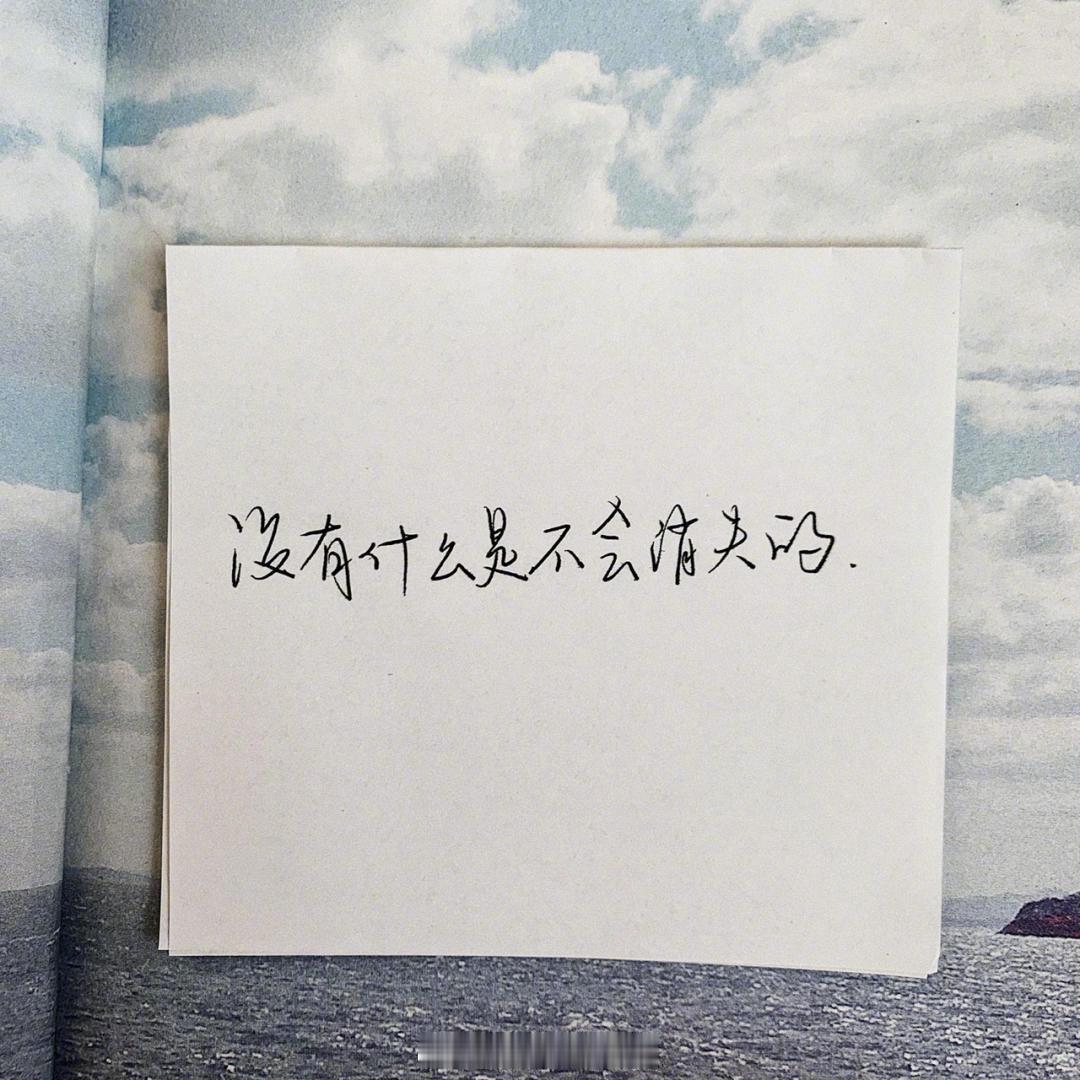 没有什么是不会消失的.